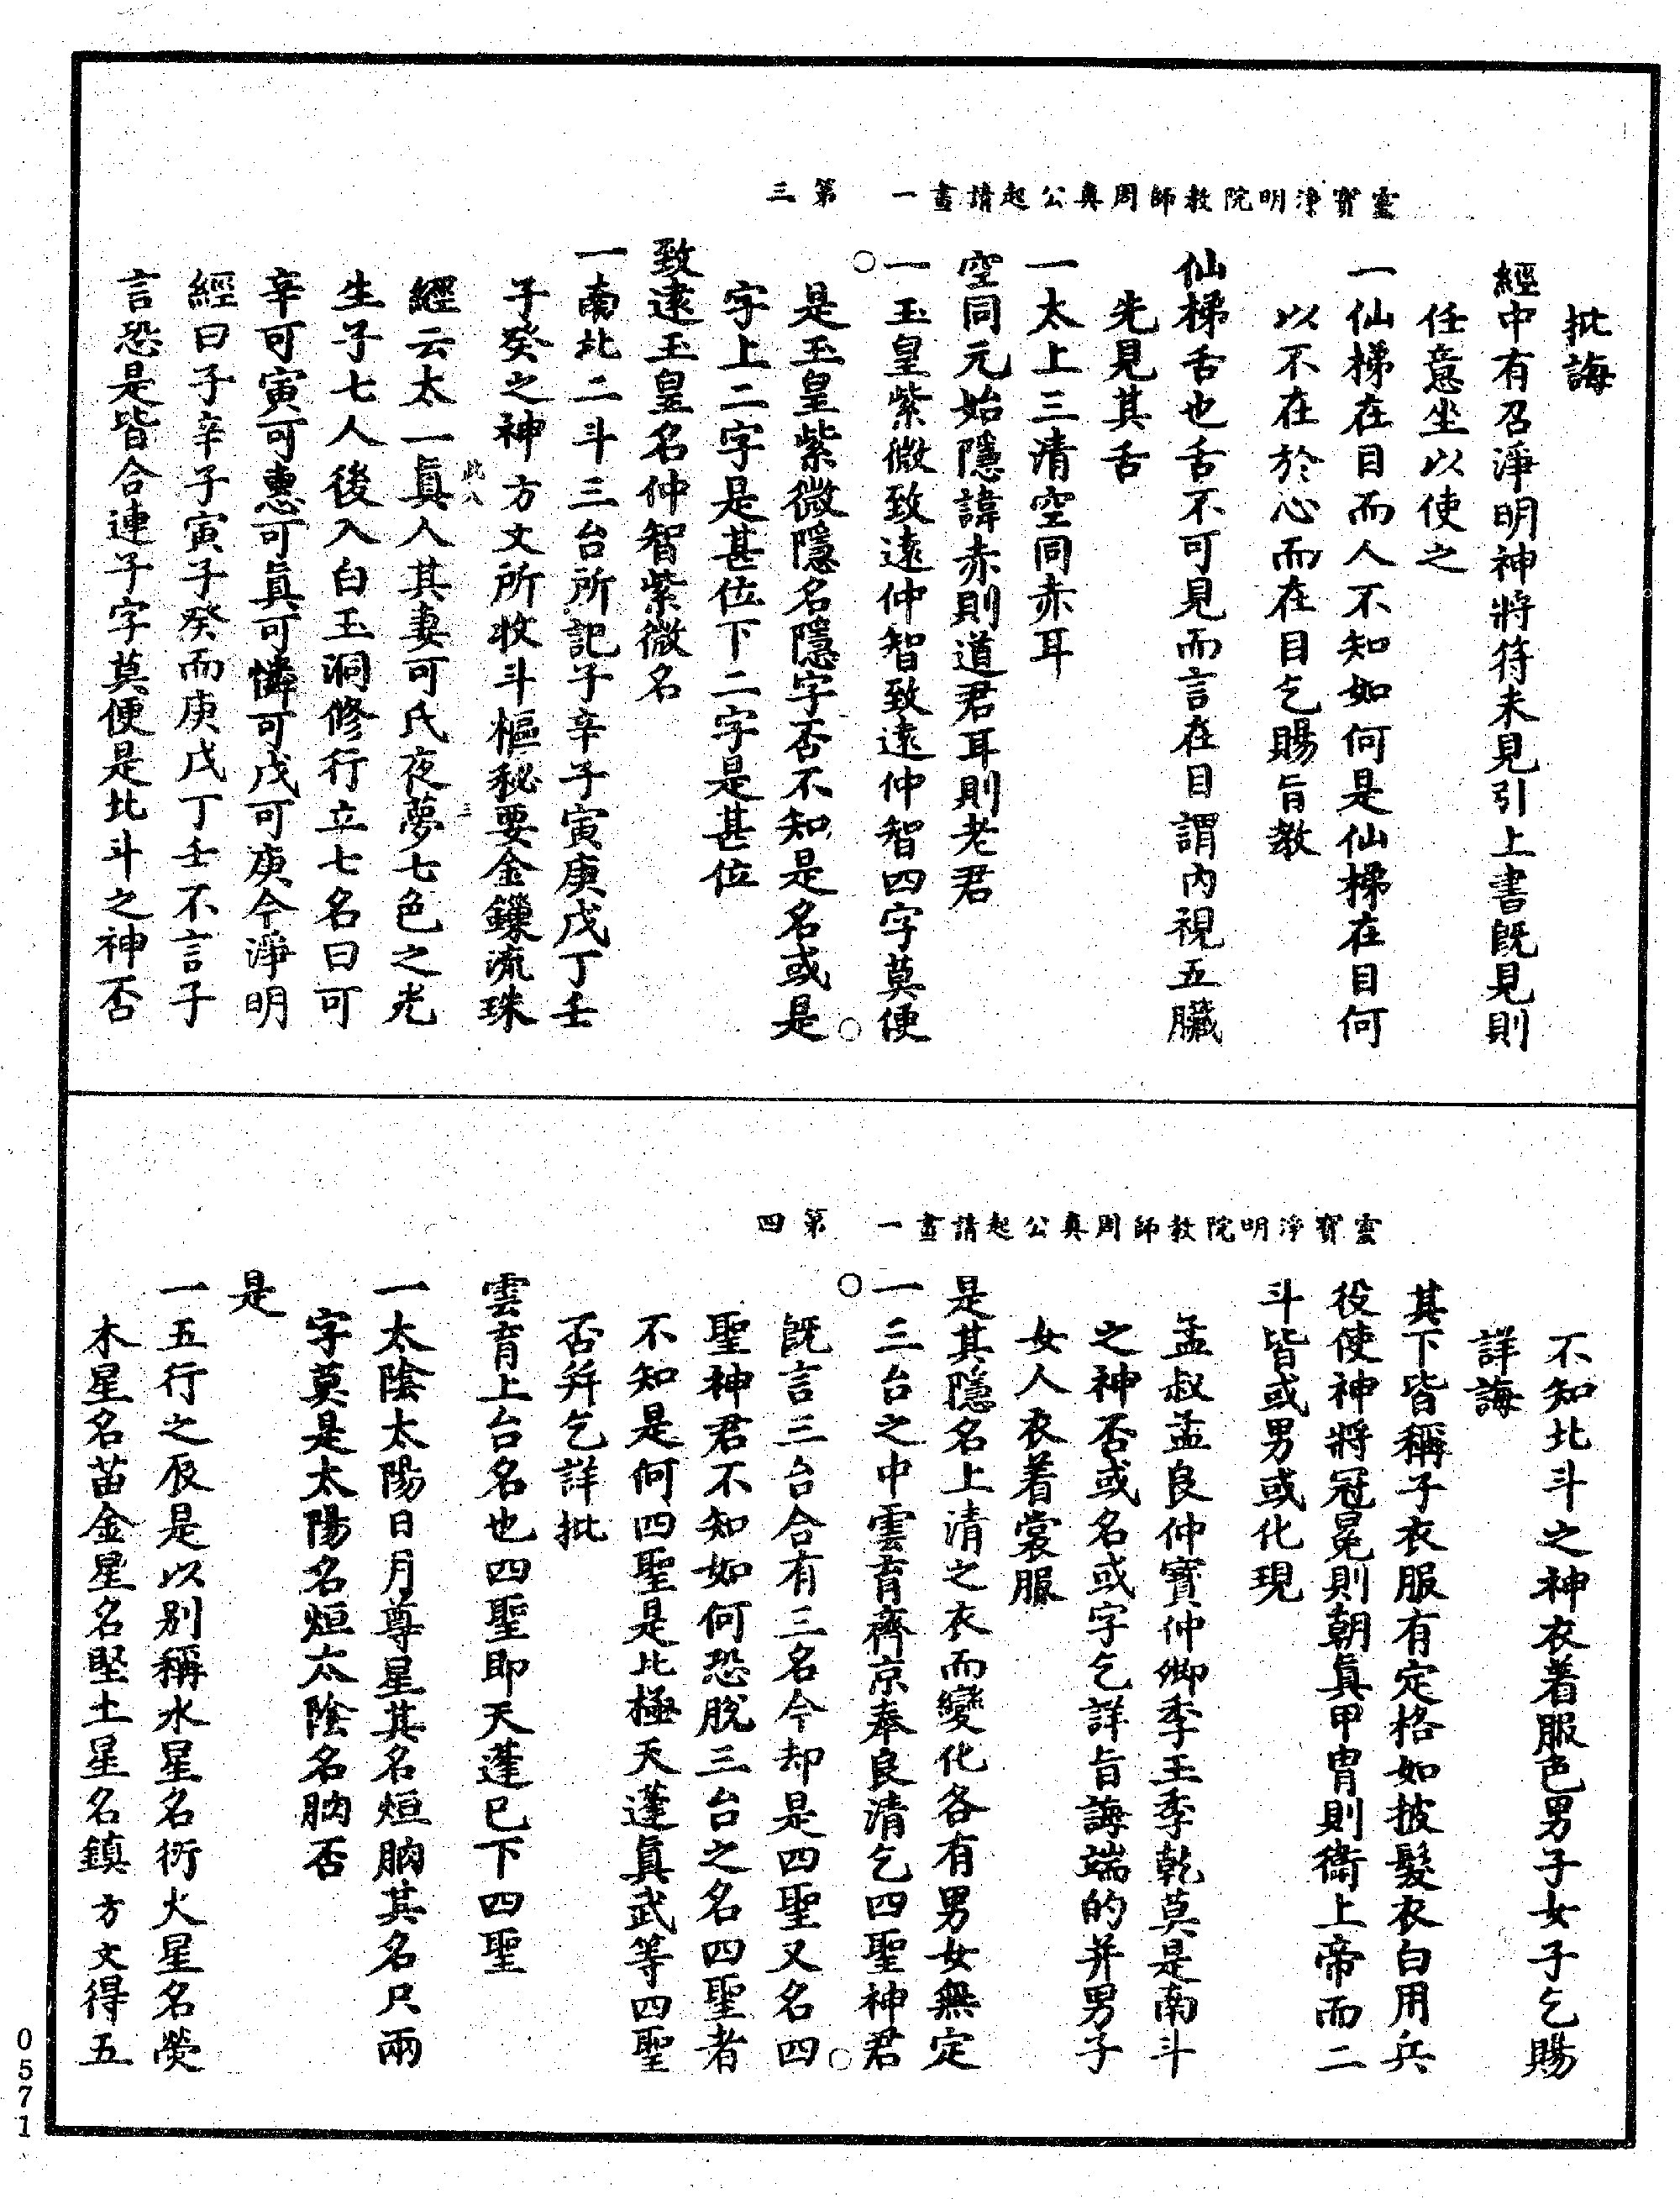 靈寶淨明院教師周真公起請畫一　第三
批誨
經中有召淨明神將符未見引上書既見則
任意坐以使之
一仙梯在目而人不知如何是仙梯在目何
以不在於心而在目乞賜旨教
仙梯舌也舌不可見而言在目謂內視五臟
先見其舌
一太上三清空同赤耳
空同元始隱諱赤則道君耳則老君
一玉皇紫微致遠仲智致遠仲智四字莫便
是玉皇紫微隱名隱字否不知是名或是
字上二字是甚位下二字是甚位
致遠玉皇名仲智紫微名
一南北二斗三台所記子辛子寅庚戊丁壬
子癸之神方文所收斗樞秘要金鏁流珠
此八　三
經云太一真人其妻可氏夜夢七色之光
生子七人後入白玉洞修行立七名曰可
辛可寅可惠可真可憐可戊可庚今淨明
經曰子辛子寅子癸而庚戊丁壬不言子
言恐是皆合連子字莫便是北斗之神否
靈寶淨明院教師周真公起請畫一　第四
不知北斗之神衣着服色男子女子乞賜
詳誨
其下皆稱子衣服有定格如披髮衣白用兵
役使神將冠冕則朝真甲胄則衛上帝而二
斗皆或男或化現
孟叔孟良仲寶仲卿季王季乾莫是南斗
之神否或名或字乞詳旨誨端的并男子
女人衣着裳服
是其隱名上清之衣而變化各有男女無定
一三台之中雲育齊京奉良清乞四聖神君
既言三台合有三名今却是四聖又名四
聖神君不知如何恐脫三台之名四聖者
不知是何四聖是北極天蓬真武等四聖
否并乞詳批
雲育上台名也四聖即天蓬已下四聖
一太陰太陽日月尊星其名烜朒其名只兩
字莫是太陽名烜太陰名朒否
是
一五行之辰是以別稱水星名衍火星名熒
木星名苗金星名堅土星名鎮方文得五
0571